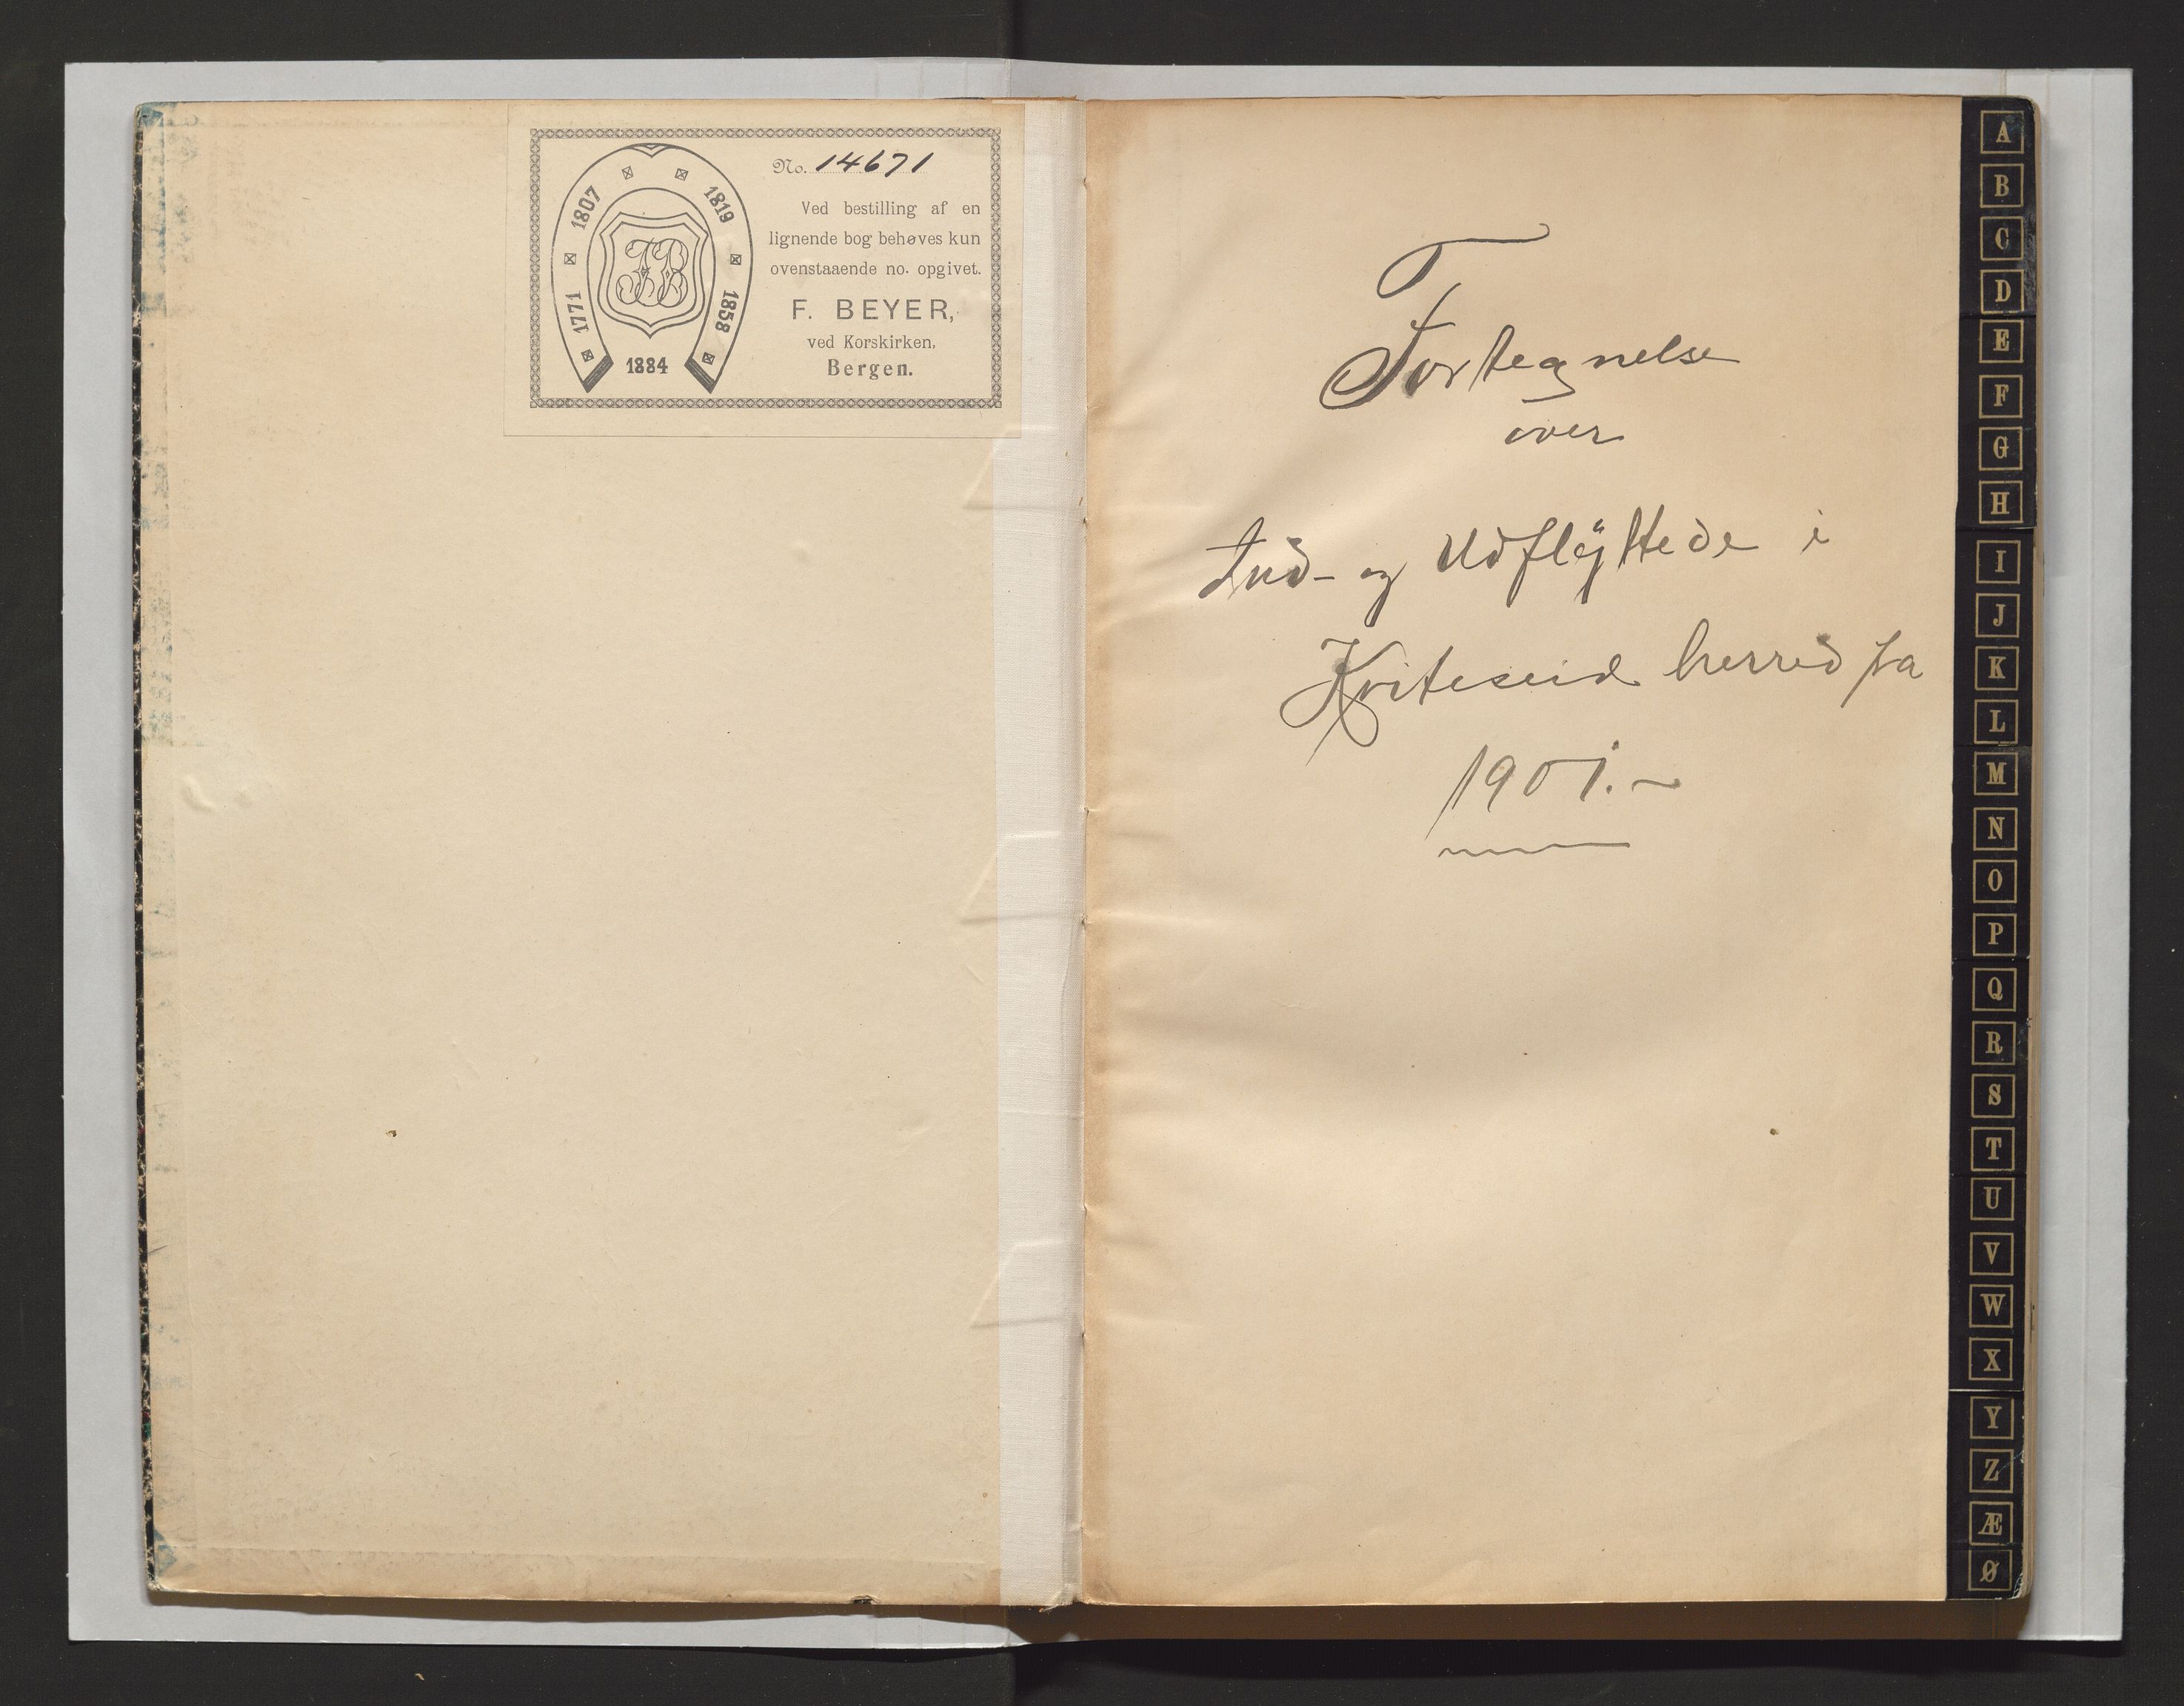 No. 14671
Ved bestilling af en
lignende bog behøves kun
ovenstaaende no. opgivet.
F. BEYER,
ved Korskirken,
Bergen.
1771
1807
1819
1858
1884
FB
Fortegnelse
over
Ind- og Udflÿttede i
Kviteseid herred fra
1901.-
A
B
C
D
E
F
G
H
I
J
K
L
M
N
O
P
Q
R
S
T
U
V
W
X
Y
Z
Æ
Ø